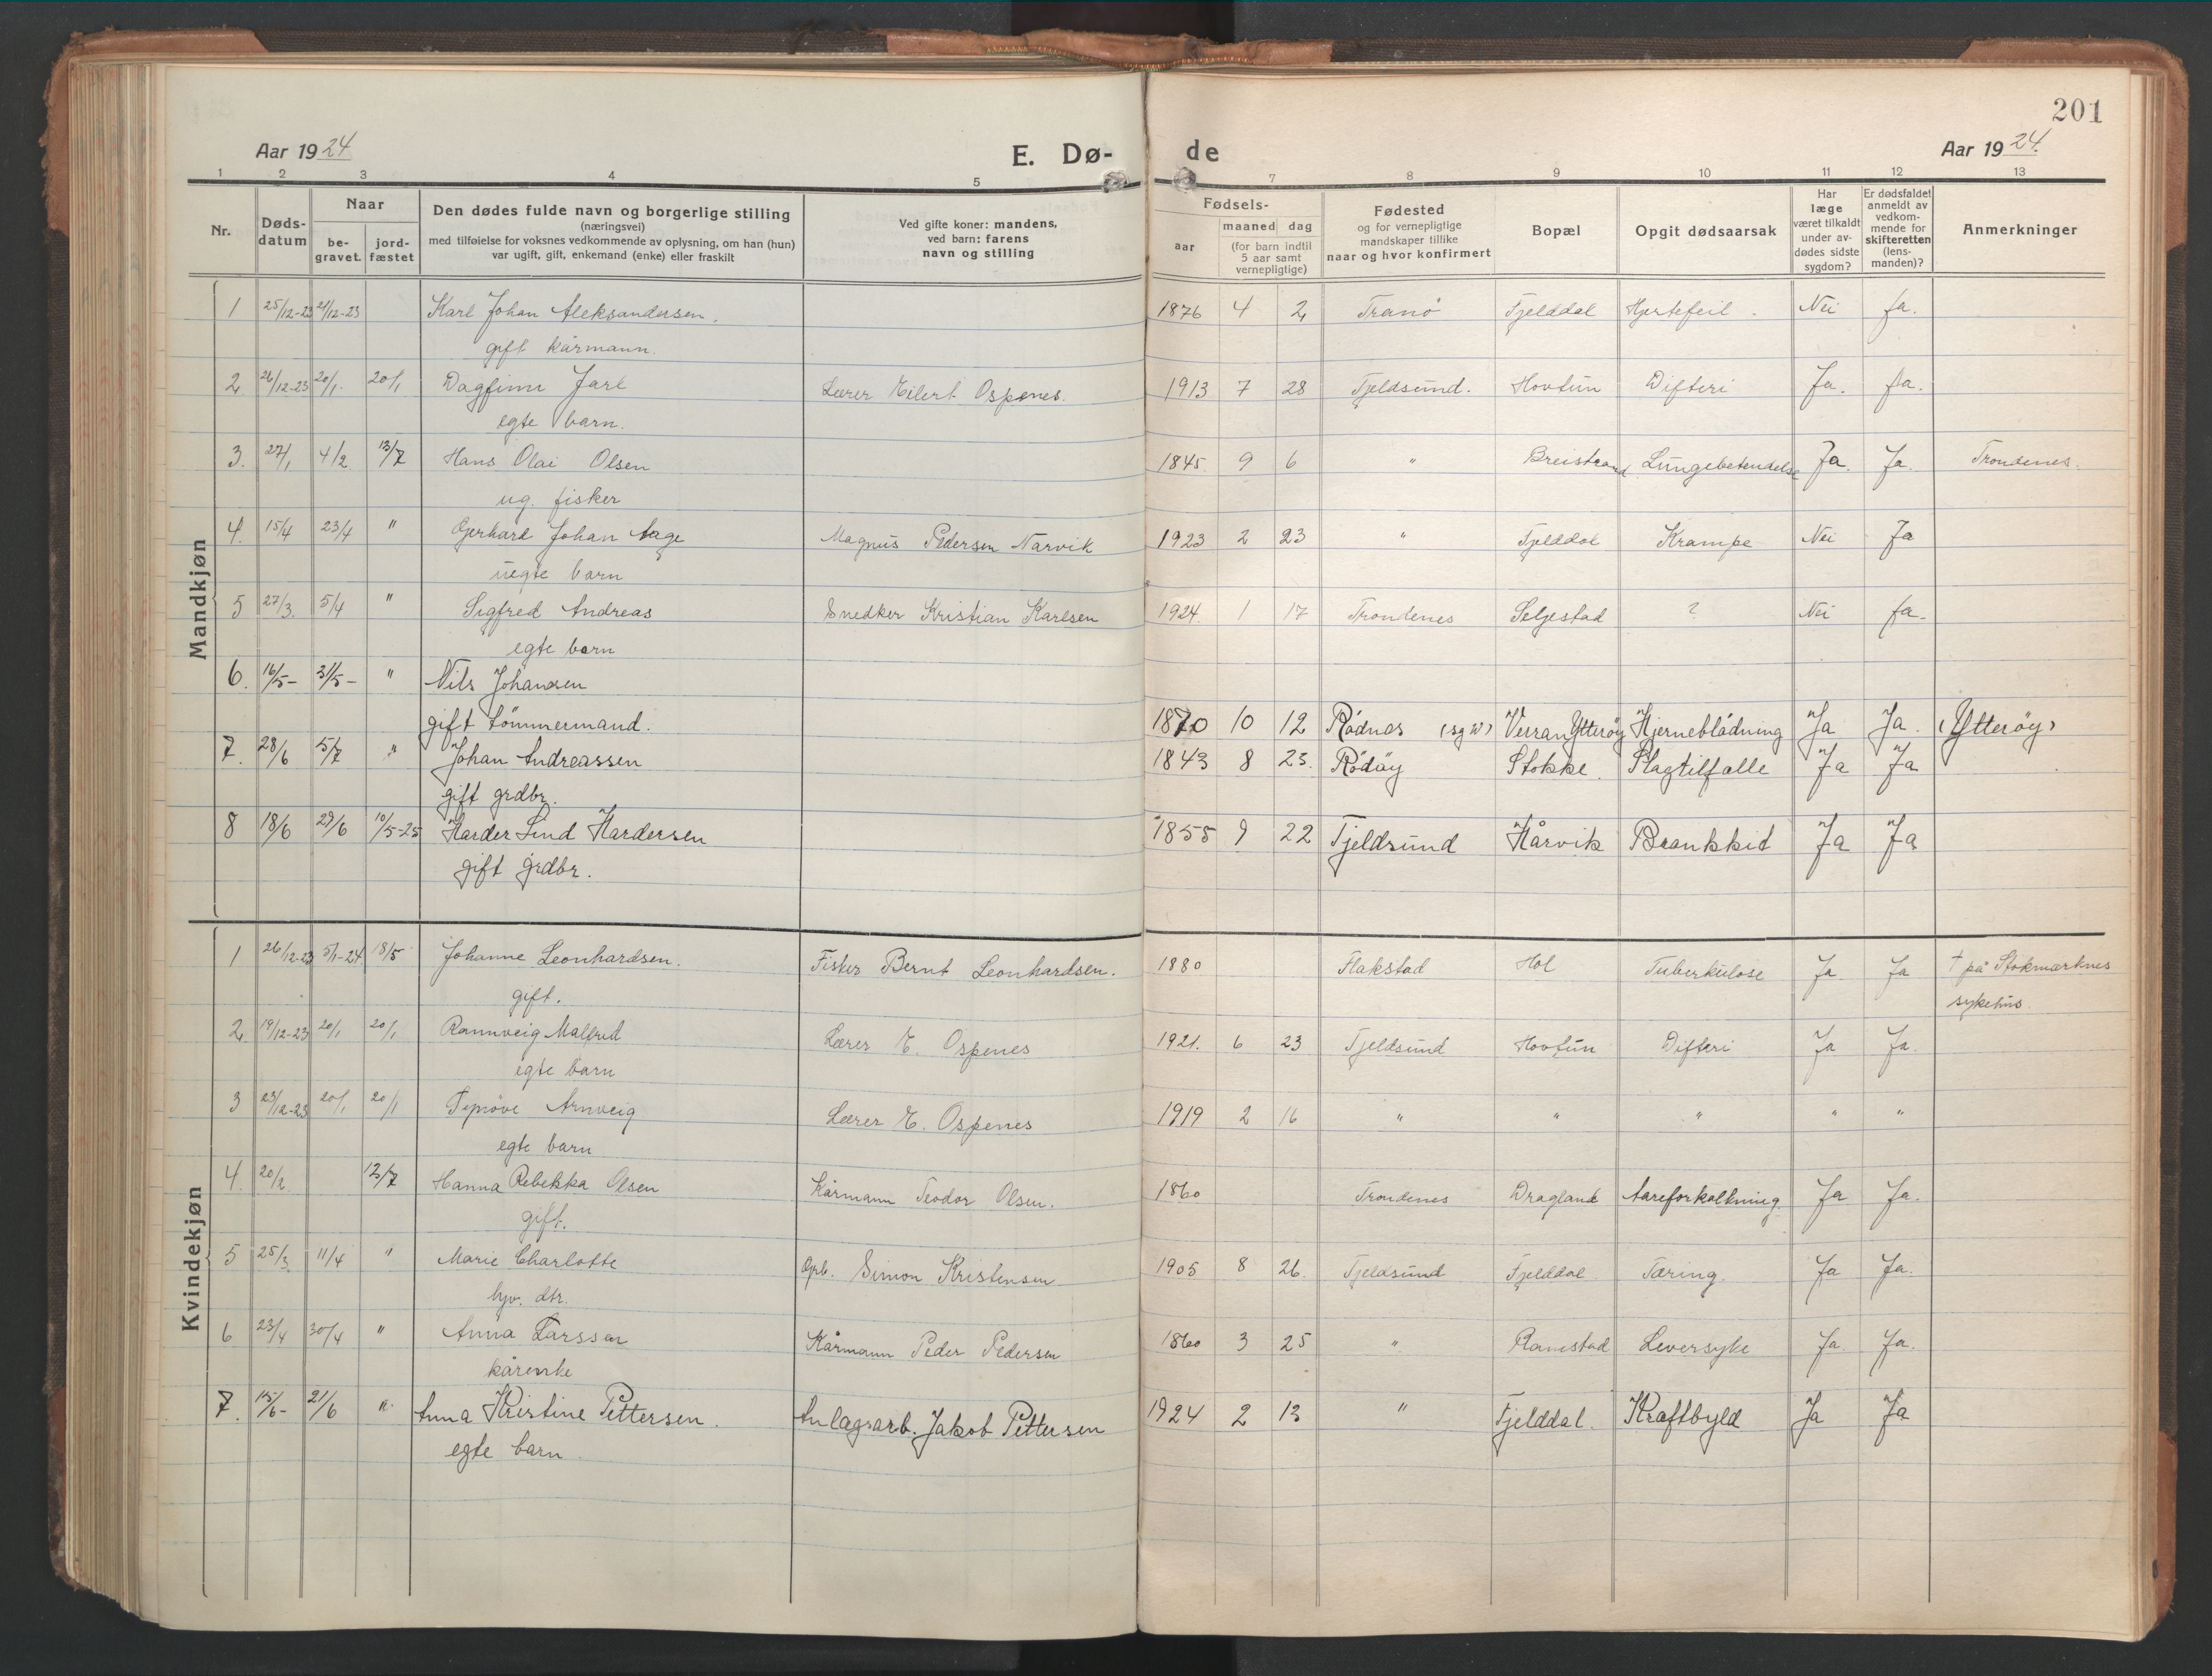 201
Aar 1924
E. Dø-
de
Aar 1924.
1 2 3 4 5 7 8 9 10 11 12 13
Nr.
Døds-
datum
Naar
be-
gravet.
jord-
fæstet
Den dødes fulde navn og borgerlige stilling
(næringsvei)
med tilføielse for voksnes vedkommende av oplysning, om han (hun)
var ugift, gift, enkemand (enke) eller fraskilt
Ved gifte koner: mandens,
ved barn: farens
navn og stilling
Fødsels-
aar
maaned dag
(for barn indtil
5 aar samt
vernepligtige)
Fødested
og for vernepligtige
mandskaper tillike
naar og hvor konfirmert
Bopæl
Opgit dødsaarsak
Har
læge
været tilkaldt
under av-
dødes sidste
sygdom?
Er dødsfaldet
anmeldt av
vedkom-
mende for
skifteretten
(lens-
manden)?
Anmerkninger
Mandkjøn
1 25/12-23 21/12-23 Karl Johan Aleksandersen. 1876 4 2 Tranö Fjelddal Hjertefeil. Nei Ja.
gift kårmann.
2 26/12-23 20/1. 20/1 Dagfinn Jarl Lærer Eilert Ospenes. 1913 7 28 Tjeldsund. Hovtun Difteri Ja. Ja.
egte barn.
3. 27/1 4/2 13/7 Hans Olai Olsen 1845 9 6 " Breistrand Lungebetendelse Ja. Ja. Trondenes.
ug. fisker
4. 15/4 23/4 " Gerhard Johan Aage Magnus Pedersen Narvik 1923 2 23 " Fjelddal Krampe Nei Ja
uegte barn
5 27/3. 5/4 " Sigfred Andreas Snedker Kristian Karlsen 1924. 1 17 Trondenes Seljestad ? Nei Ja.
egte barn
6. 16/5- 31/5- " Nils Johansen
gift tömmermand. 1870 10 12 Rödnes Verran Ytteröy Hjerneblödning Ja Ja. (Ytteröy)
7. 28/6 5/7 " Johan Andreassen 1843 8 23. Rödöy Stokke. Slagtilfalle Ja Ja
gift grdbr.
8 18/6 29/6 10/5-25 Harder Lind Hardersen 1855 9 22 Tjeldsund Hårvik Brankkit Ja Ja
gift grdbr.
Kvindekjøn
1 26/12-23 5/1-24 18/5 Johanne Leonhardsen. Fisker Bernt Leonhardsen. 1880 Flakstad Hol Tuberkulose Ja Ja † på Stokmarknes
gift. sykehus.
2 19/12-23 20/1 20/1 Rannveig Malfrid Lærer E. Ospenes 1921. 6 23 Tjeldsund Hovtun Difteri Ja Ja.
egte barn
3 23/12-23 20/1 20/1 Synöve Arnveig Lærer E. Ospenes 1919 2 16 " " " " "
egte barn
4. 20/2 13/7 Hanna Rebekka Olsen Kårmann Teodor Olsen. 1860 Trondenes Dragland Aareforkalkning. Ja Ja.
gift.
5 25/3 11/4 " Marie Charlotte Grb. Simon Kristensen 1905 8 26. Tjeldsund Fjelddal Tæring. Ja Ja.
hjv. dtr.
6 23/4 30/4 " Anna Larssen Kårmann Peder Pedersen 1860 3 25 " Ramstad Leversyke Ja Ja.
kårenke
7. 15/6- 21/6 " Anna Kristine Pettersen. Anlægsarb. Jakob Pettersen 1924 2 13 " Fjelddal. Kraftbyld Ja Ja
egte barn.